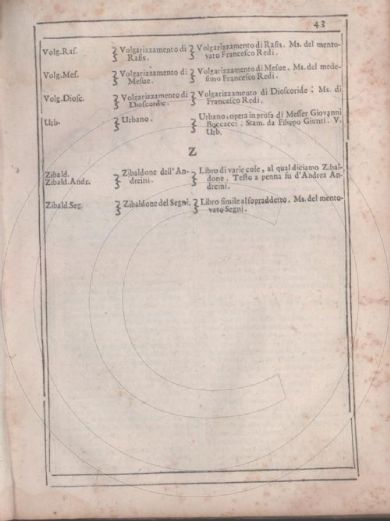 43
Volg. Ras. Volgarizzamento di Volgarizzamento di Rasis. Ms. del mento-
Rasis. vato Francesco Redi.
Volg. Mes. Volgarizzamento di Volgarizzamento di Mesue. Ms. del mede-
Mesue. simo Francesco Redi.
Volg. Diosc. Volgarizzamento di Volgarizzamento di Dioscoride; Ms. di
Dioscoride. Francesco Redi.
Urb. Urbano. Urbano, opera in prosa di Messer Giovanni
Boccacci. Stam. da Filippo Giunti. V.
Urb.
Z
Zibald. Zibaldone dell'An- Libro di varie cose, al qual diciamo Zibal-
Zibald. Andr. dreini. done. Testo a penna fu d'Andrea An-
dreini.
Zibald. Seg. Zibaldone del Segni. Libro simile al sopraddetto. Ms. del mento-
vato Segni.